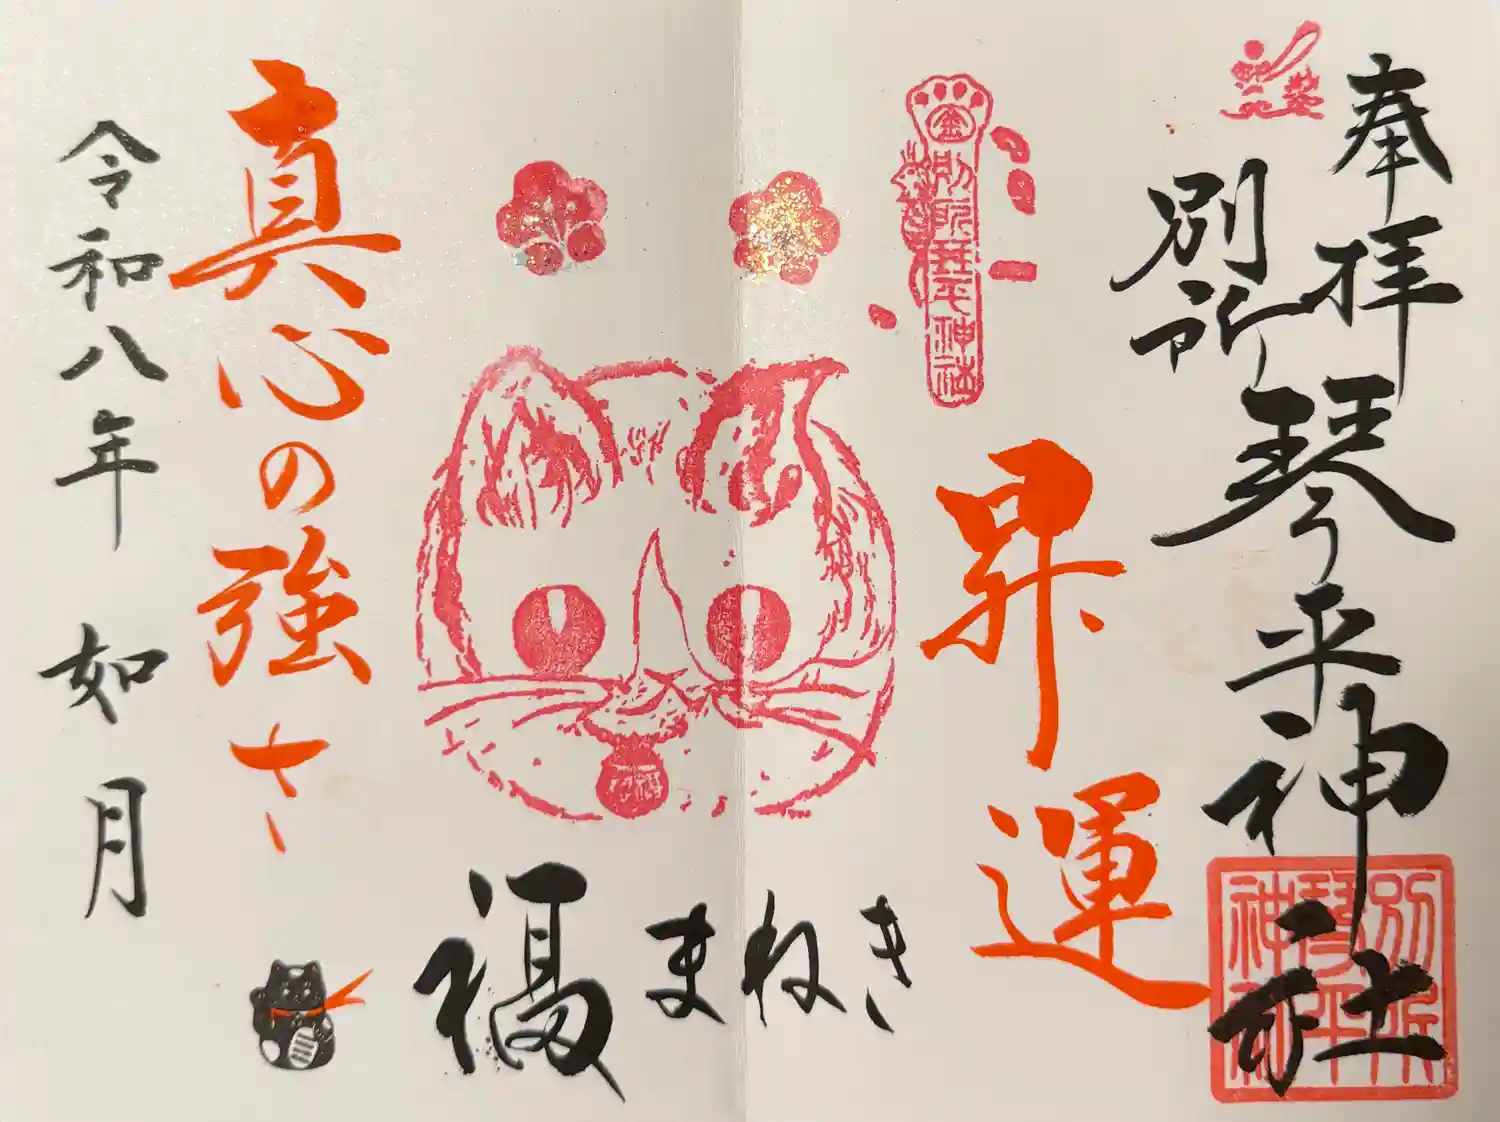 奉拝
別所琴平神社
別所
琴平
神社
金
別所琴平神社
昇運
福まねき
真心の強さ
令和八年 如月